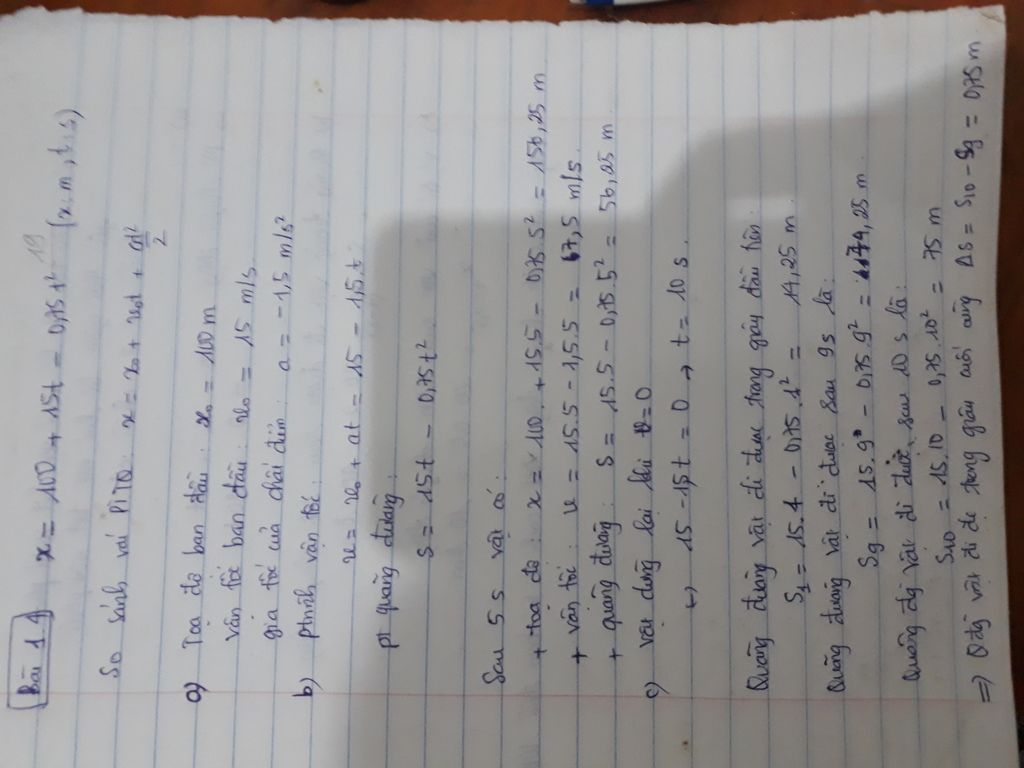 Bài 1.4
x = 100 + 15t - 0,75t² (x:m, t:s)
19
So sánh với PTTQ: x = x₀ + v₀t + at²/2
a) Tọa độ ban đầu: x₀ = 100 m
vận tốc ban đầu: v₀ = 15 m/s.
gia tốc của chất điểm: a = -1,5 m/s²
b) ptrình vận tốc:
v = v₀ + at = 15 - 1,5.t.
pt quãng đường:
s = 15.t - 0,75t²
Sau 5s vật có:
+ tọa độ: x = 100 + 15.5 - 0,75.5² = 156,25 m
+ vận tốc: v = 15.5 - 1,5.5 = 67,5 m/s.
+ quãng đường: s = 15.5 - 0,75.5² = 56,25 m.
c) vật dừng lại khi v=0
↔ 15 - 1,5t = 0 → t = 10 s.
Quãng đường vật đi được trong giây đầu tiên:
S₁ = 15.1 - 0,75.1² = 14,25 m.
Quãng đường vật đi được sau 9s là:
S₉ = 15.9 - 0,75.9² = 74,25 m.
Quãng đg vật đi được sau 10 s là:
S₁₀ = 15.10 - 0,75.10² = 75 m
=) Qđg vật đi đc trong giây cuối cùng ΔS = S₁₀ - S₉ = 0,75 m